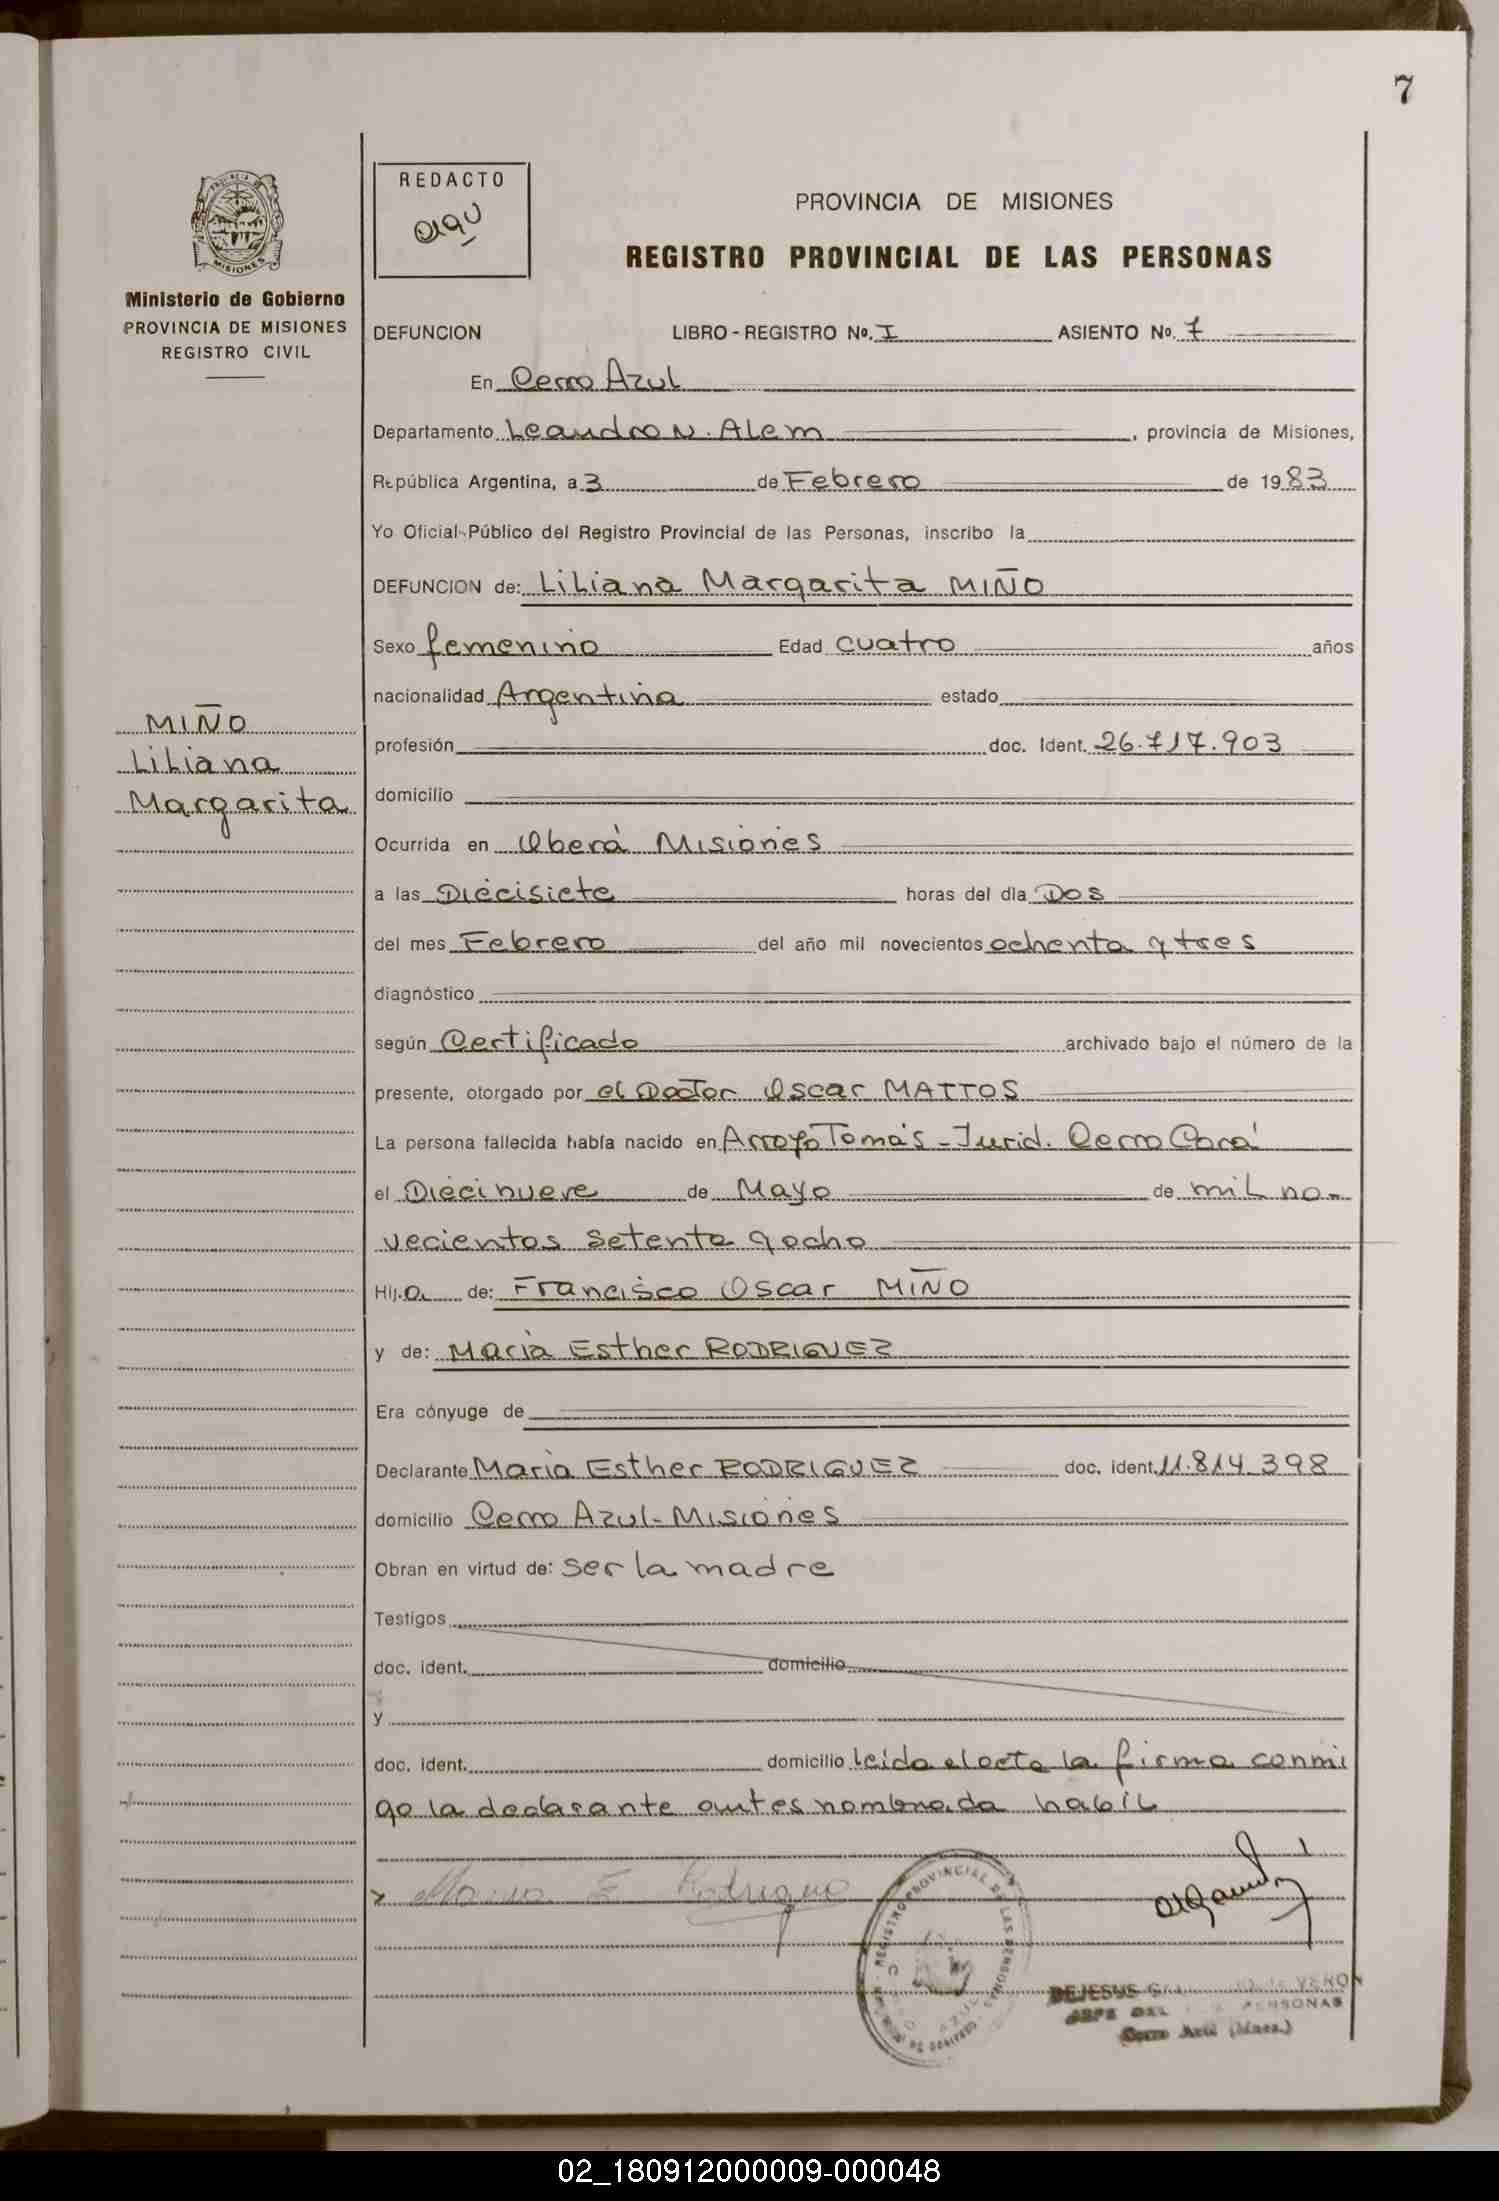 7
REDACTO
PROVINCIA DE MISIONES
REGISTRO PROVINCIAL DE LAS PERSONAS
MISIONES
Ministerio de Gobierno
PROVINCIA DE MISIONES
REGISTRO CIVIL
DEFUNCION LIBRO - REGISTRO No. I ASIENTO No. 7
En Cerro Azul
Departamento Leandro N. Alem, provincia de Misiones,
República Argentina, a 3 de Febrero de 1983
Yo Oficial Público del Registro Provincial de las Personas, inscribo la
DEFUNCION de: Liliana Margarita MIÑO
Sexo femenino Edad cuatro años
nacionalidad Argentina estado
MIÑO
Liliana
Margarita
profesión doc. Ident. 26.717.903
domicilio
Ocurrida en Oberá Misiones
a las Diecisiete horas del día Dos
del mes Febrero del año mil novecientos ochenta y tres
diagnóstico
según Certificado archivado bajo el número de la
presente, otorgado por el Doctor Oscar MATTOS
La persona fallecida había nacido en Arroyo Tomás - Jurid. Cerro Corá
el Diecinueve de Mayo de mil no-
vecientos setenta y ocho
Hij.a de: Francisco Oscar MIÑO
y de: María Esther RODRIGUEZ
Era cónyuge de
Declarante María Esther RODRIGUEZ doc. ident. 11.814.398
domicilio Cerro Azul - Misiones
Obran en virtud de: ser la madre
Testigos
doc. ident. domicilio
y
doc. ident. domicilio leída el acta la firma conmi
go la declarante antes nombrada hábil
x Maria E Rodriguez
REGISTRO PROVINCIAL DE LAS PERSONAS
AZUL
DEJESUS VERON
JEFE DEL PERSONAS
Cerro Azul (Mnes.)
02_180912000009-000048